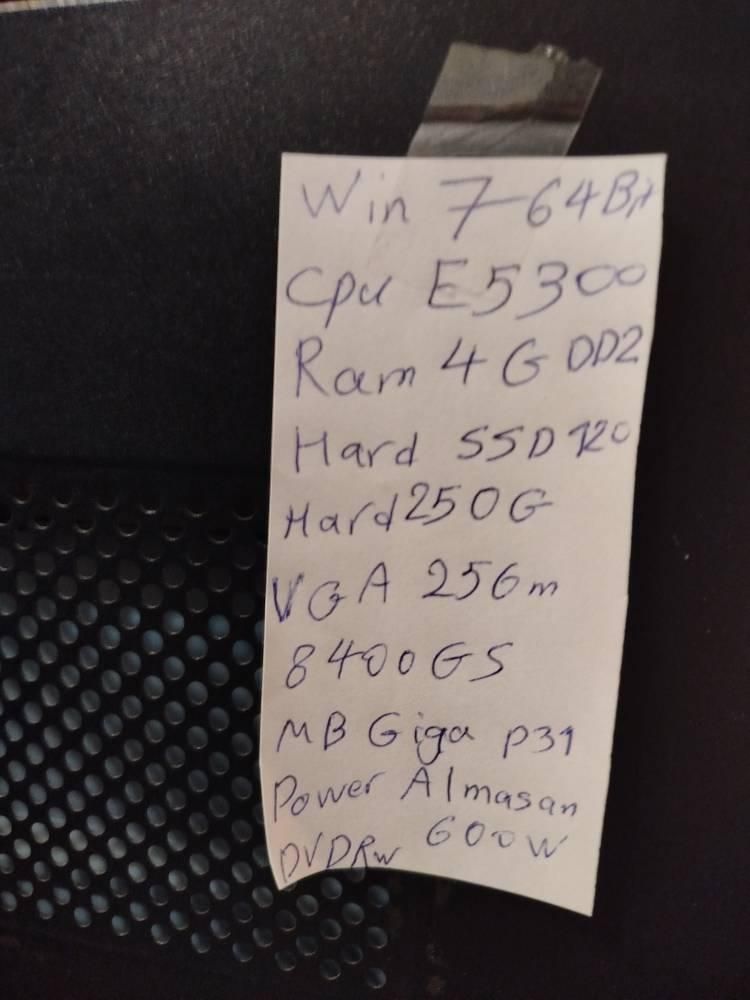 Win 7 64Bit
Cpu E5300
Ram 4G DD2
Hard SSD 120
Hard 250G
VGA 256m
8400GS
MB Giga P31
Power Almasan
600W
DVDRw